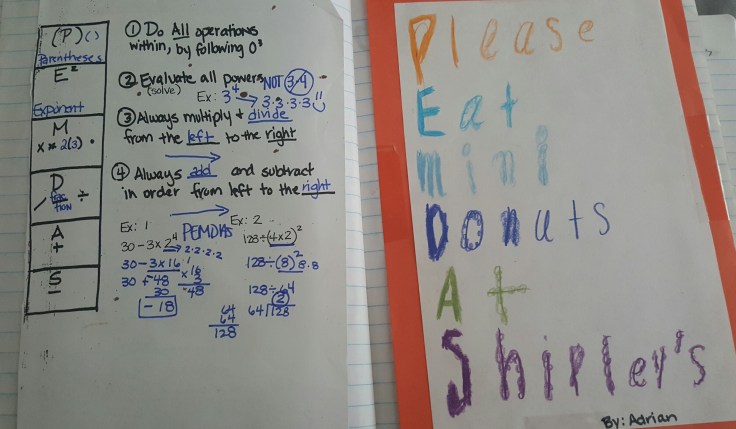 (P) ()
Parentheses
E²
Exponent
M
x * 2(3) •
D
/ ÷
A
+
S
−
① Do All operations
within, by following O³
② Evaluate all powers NOT 3·4
(solve)
Ex: 3⁴ → 3·3·3·3
③ Always multiply & divide
from the left to the right
④ Always add and subtract
in order from left to the right
PEMDAS
Ex: 1
30 − 3 x 2⁴ → 2·2·2·2
30 − 3 x 16
30 + −48
30
−18
x 16
3
48
Ex: 2
128 ÷ (4 x 2)²
128 ÷ (8)² 8·8
128 ÷ 64
2
64 128
64
64
128
Please
Eat
mini
Donuts
At
Shirley's
By: Adrian